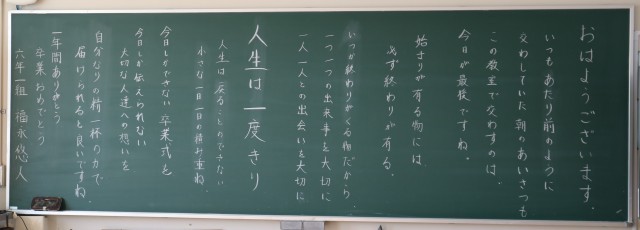 おはようございます。
いつもあたり前のように
交わしていた朝のあいさつも
この教室で交わすのは、
今日が最後ですね。
始まりが有る物には
必ず終わりが有る。
いつか終わりがくる物だから、
一つ一つの出来事を大切に
一人一人との出会いを大切に
人生は一度きり
人生は戻ることのできない
小さな一日一日の積み重ね。
今日しかできない卒業式を
今日しか伝えられない
大切な人達への想いを
自分なりの精一杯の力で
届けられると良いですね。
一年間ありがとう
卒業おめでとう
六年一組 福永悠人